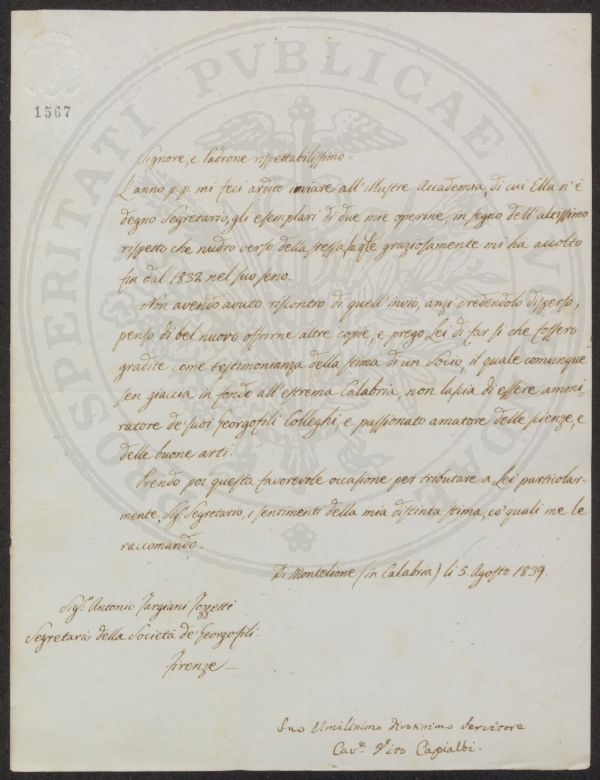 PROSPERITATI PVBLICAE
1567
Signore, e Padrone rispettabilissimo=
L'anno p.p. mi feci ardito inviare all'illustre Accademia, di cui Ella n'è
degno Segretario, gli esemplari di due mie operine, in segno dell'altissimo
rispetto che nudro verso della stessa, graziosamente mi ha accolto
fin dal 1832 nel suo seno.
Non avendo avuto riscontro di quell'invio, anzi credendolo disperso,
penso di bel nuovo offrirne altre copie, e prego Lei di far sì che fossero
gradite come testimonianza della stima di un Socio, il quale comunque
sen giaccia in fondo all'estrema Calabria, non lascia di essere ammi-
ratore de' suoi Georgofili Colleghi, e passionato amatore delle scienze, e
delle buone arti.
Prendo poi questa favorevole occasione per tributare a Lei particolar-
mente, Sig. Segretario, i sentimenti della mia distinta stima, co' quali me le
raccomando.
Di Monteleone (in Calabria) li 5 Agosto 1839.
Sig.r Antonio Targiani Tozzetti
Segretario della Società de' Georgofili
Firenze
Suo Umilissimo divotissimo servitore
Cav.r Vito Capialbi.